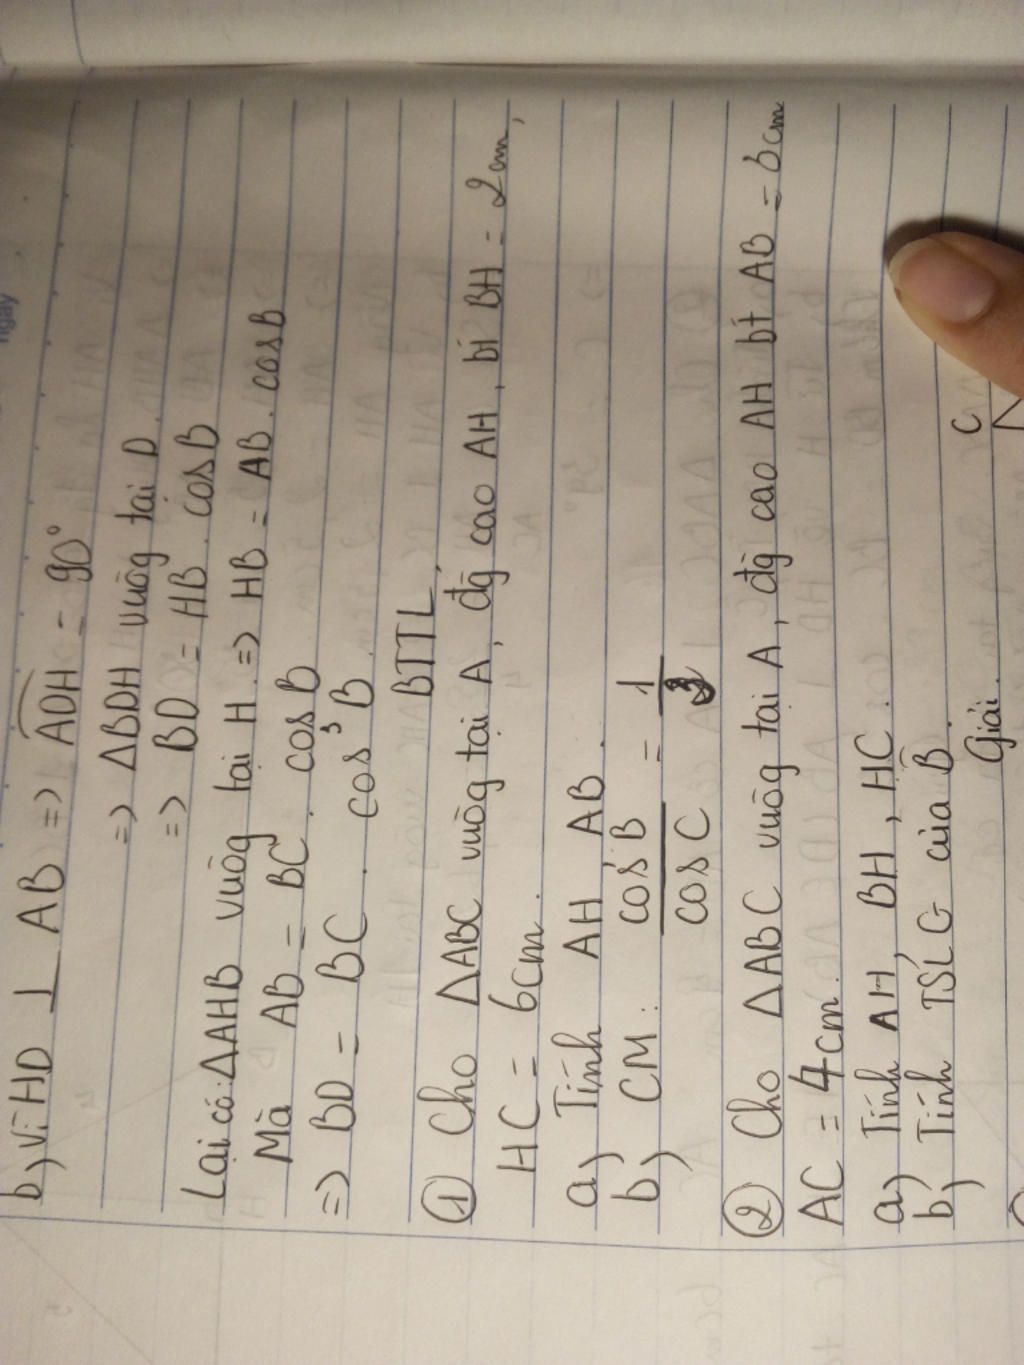 ngày
b) Vì HD ⊥ AB => ADH = 90°
=> ΔBDH vuôg tại D.
=> BD = HB . cosB
Lại có: ΔAHB vuôg tại H => HB = AB . cosB
Mà AB = BC . cosB
=> BD = BC . cos³B
BTTL
① Cho ΔABC vuôg tại A, đg cao AH, bí BH = 2cm,
HC = 6cm.
a) Tính AH, AB.
b) CM: cosB / cosC = 1/3
② Cho ΔABC vuôg tại A, đg cao AH bt AB = 3cm
AC = 4cm.
a) Tính AH, BH, HC.
b) Tính TSLG của B.
Giải.
C